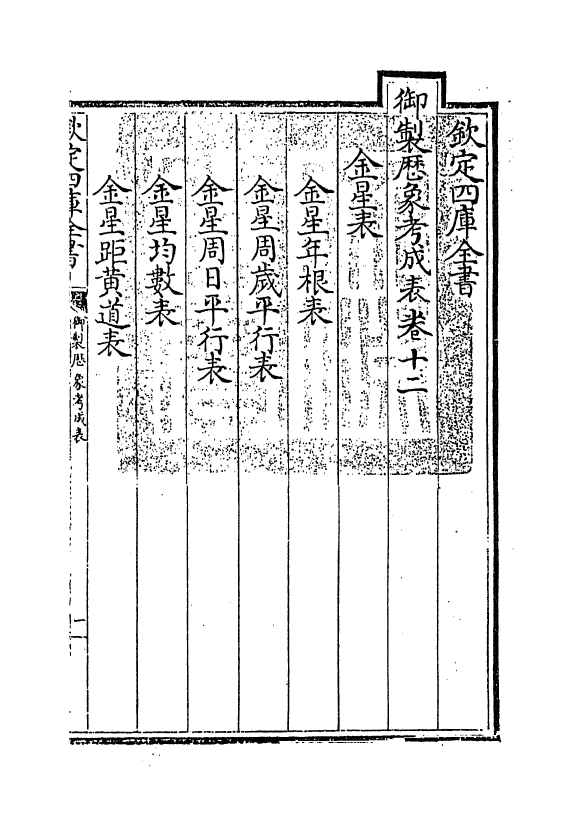 欽定四庫全書
御製歷象考成表卷十二
金星表
金星年根表
金星周歲平行表
金星周日平行表
金星均數表
金星距黃道表
欽定四庫全書
御製歷象考成表
一